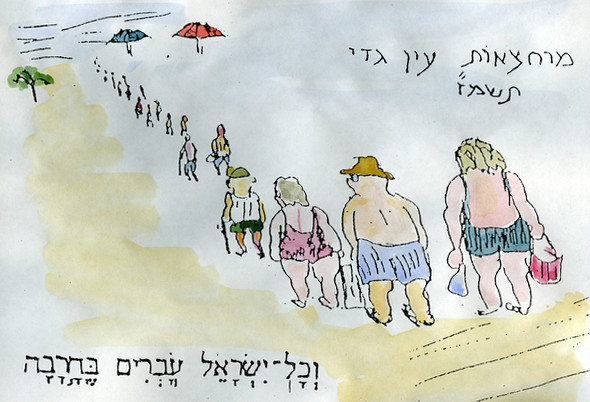 מרחצאות עין גדי
תשמ״ז
וְכָל־יִשְׂרָאֵל עֹבְרִים בֶּחָרָבָה